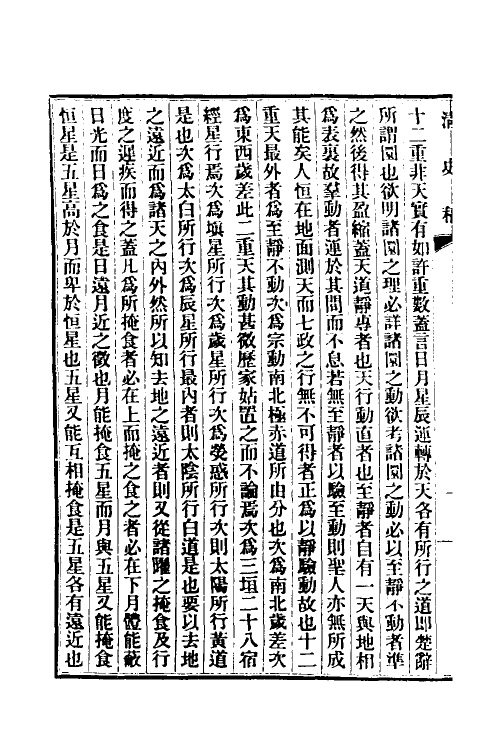 清史稿
十二重非天實有如許重數蓋言日月星辰運轉於天各有所行之道即楚辭
所謂圜也欲明諸圜之理必詳諸圜之動欲考諸圜之動必以至靜不動者準
之然後得其盈縮蓋天道靜專者也天行動直者也至靜者自有一天與地相
為表裏故羣動者運於其間而不息若無至靜者以驗至動則聖人亦無所成
其能矣人恒在地面測天而七政之行無不可得者正為以靜驗動故也十二
重天最外者為至靜不動次為宗動南北極赤道所由分也次為南北歲差次
為東西歲差此二重天其動甚微歷家姑置之而不論焉次為三垣二十八宿
經星行焉次為填星所行次為歲星所行次為熒惑所行次則太陽所行黃道
是也次為太白所行次為辰星所行最內者則太陰所行白道是也要以去地
之遠近而為諸天之內外然所以知去地之遠近者則又從諸曜之掩食及行
度之遲疾而得之蓋凡為所掩食者必在上而掩之食之者必在下月體能蔽
日光而日為之食是日遠月近之徵也月能掩食五星而月與五星又能掩食
恒星是五星高於月而卑於恒星也五星又能互相掩食是五星各有遠近也